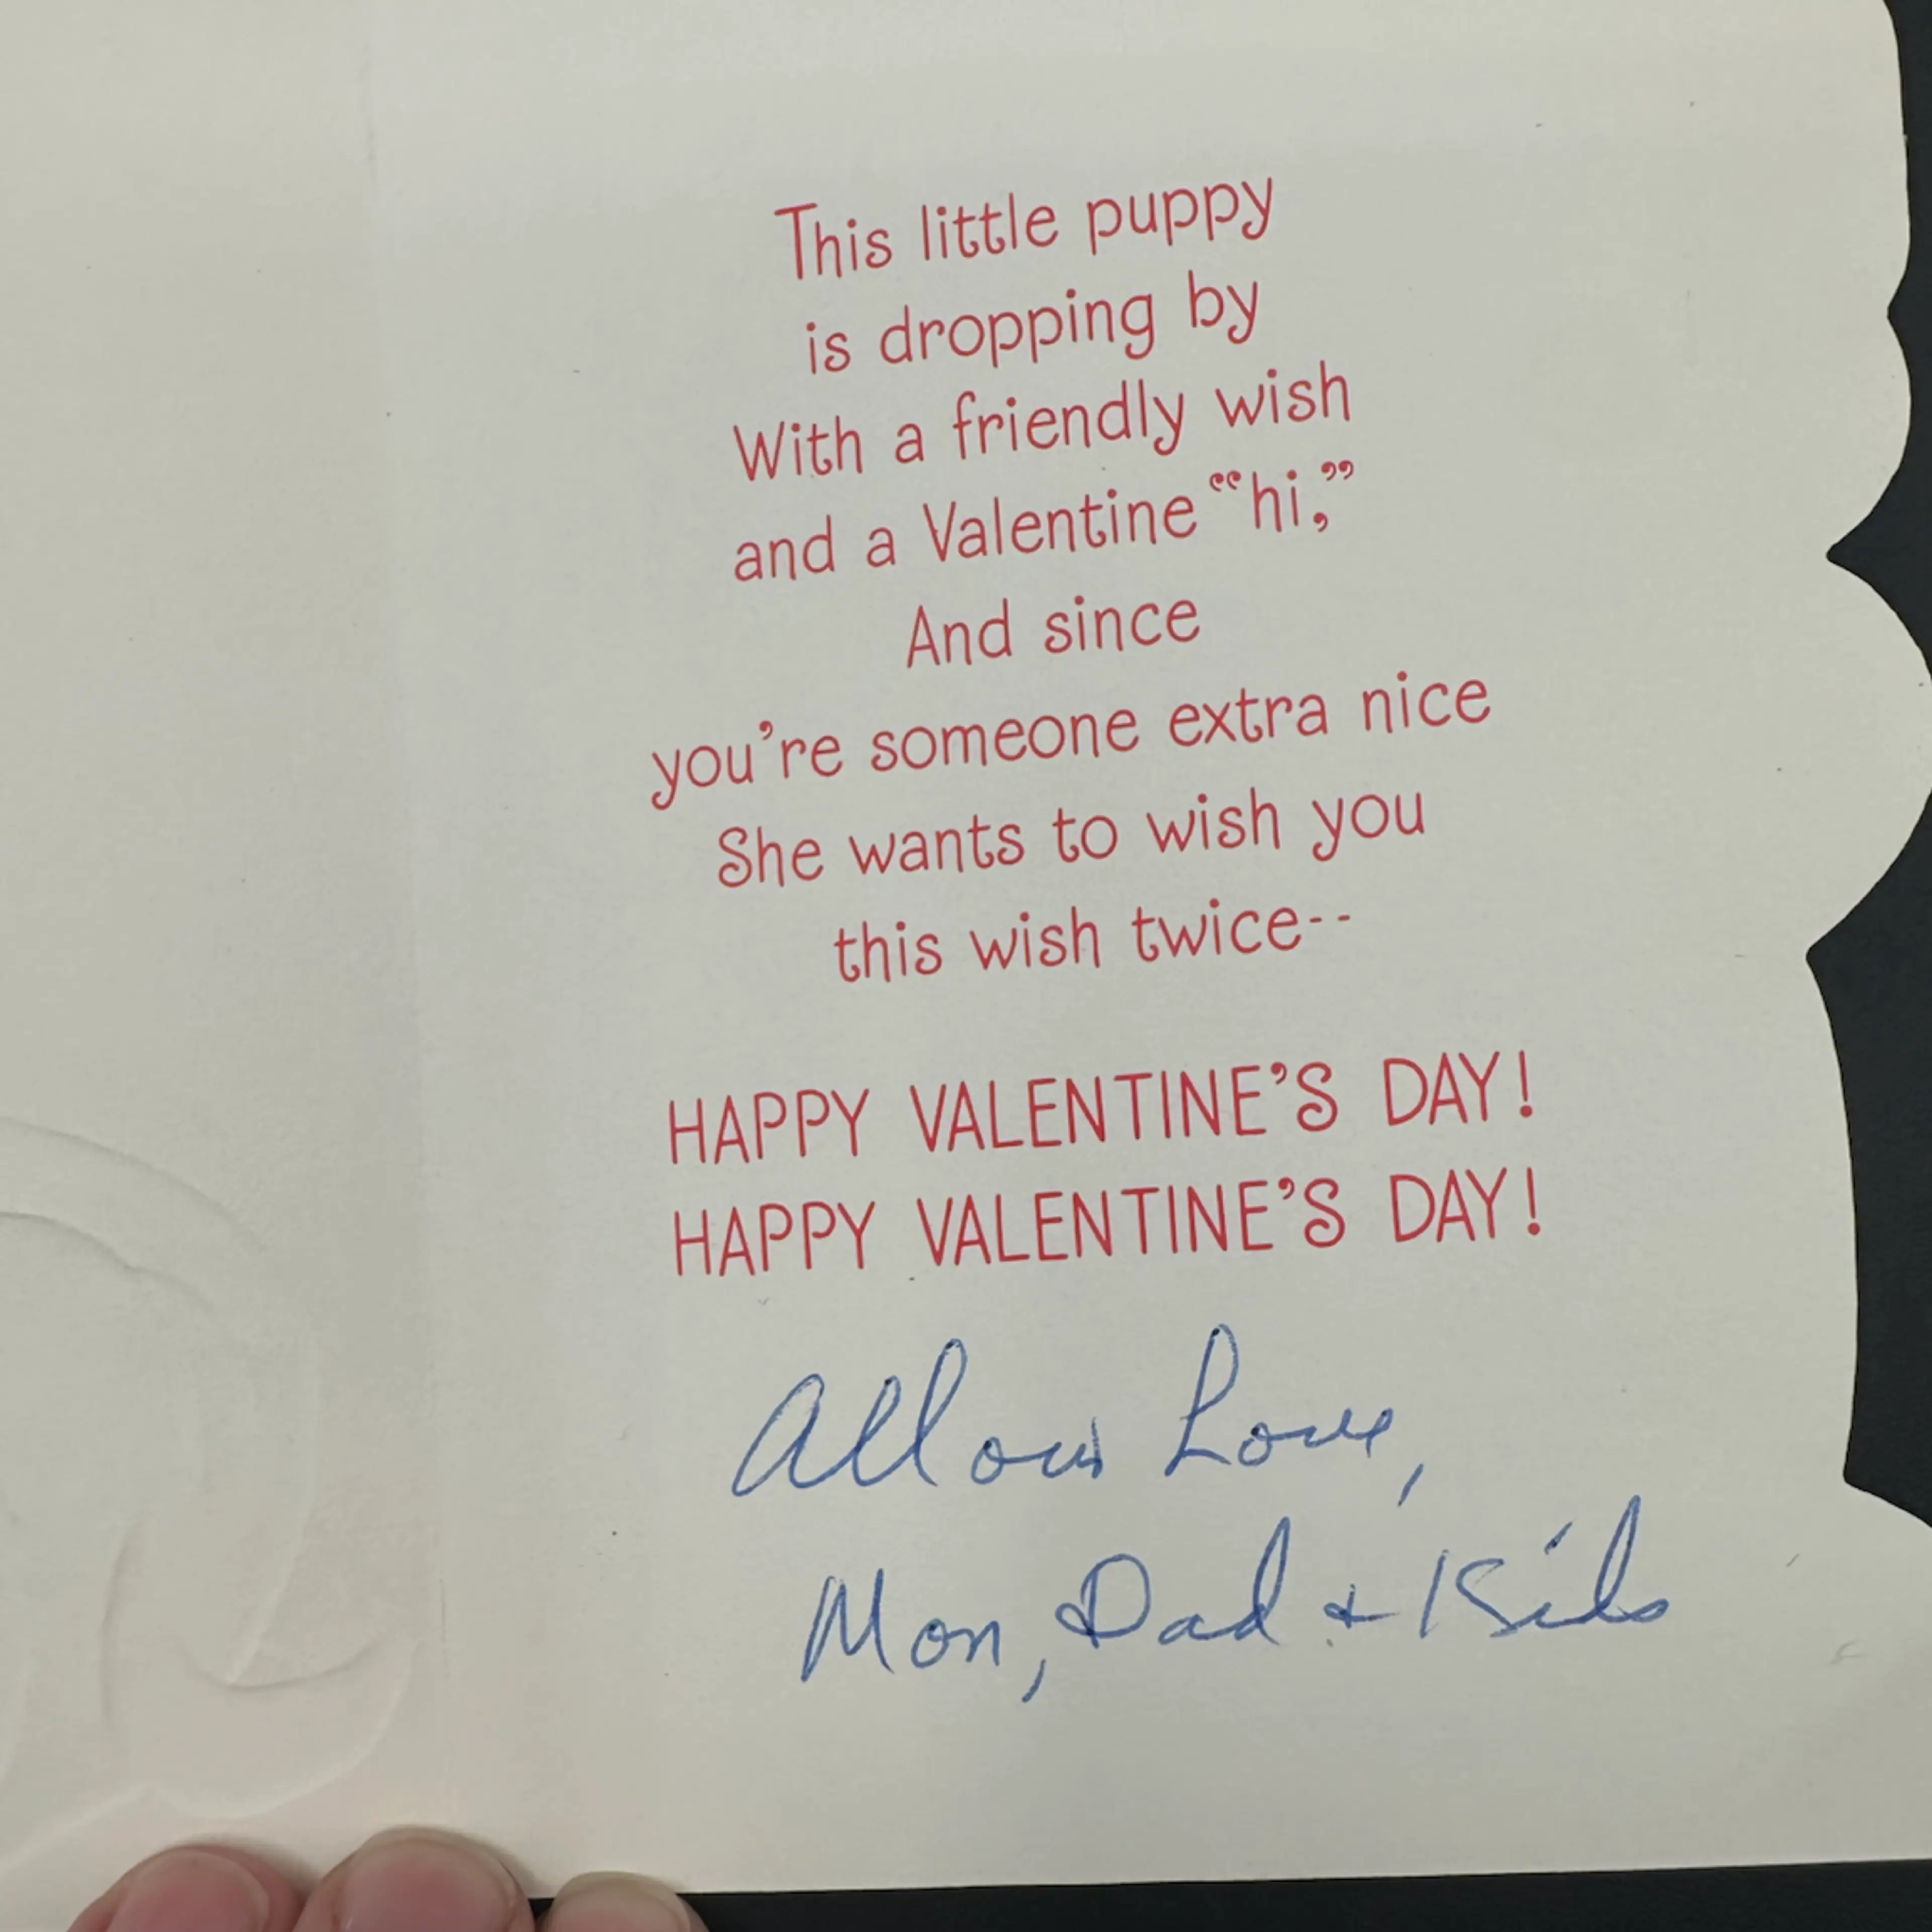 This little puppy
is dropping by
With a friendly wish
and a Valentine “hi,”
And since
you’re someone extra nice
She wants to wish you
this wish twice--
HAPPY VALENTINE’S DAY!
HAPPY VALENTINE’S DAY!
All our Love,
Mom, Dad + Kids